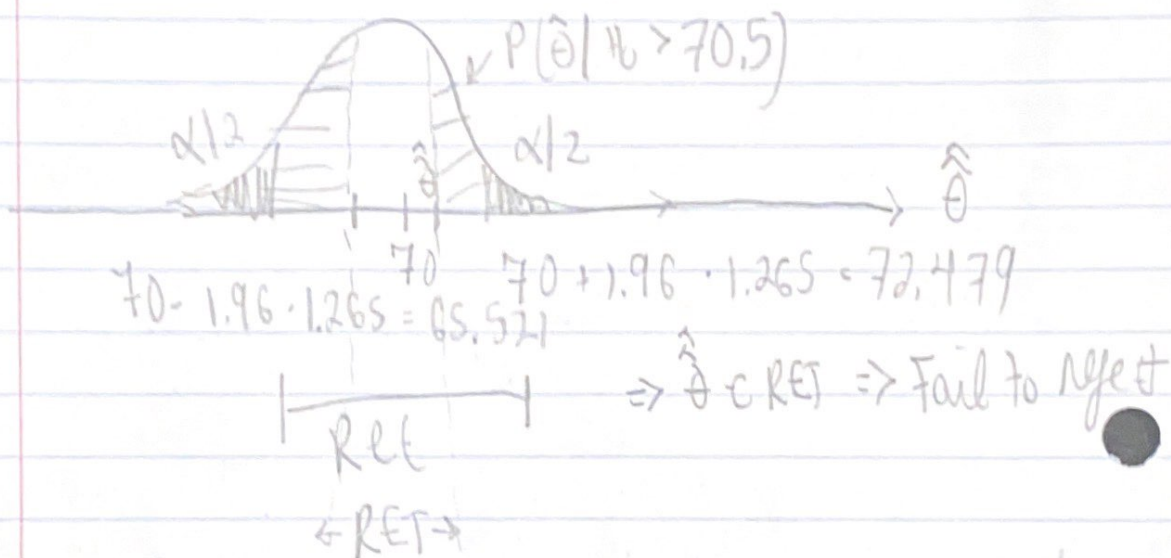 P(θ̂̂ | H₀ > 70.5)
α/2 α/2
θ̂̂
θ̂̂
70
70 - 1.96 · 1.265 = 65.521
70 + 1.96 · 1.265 = 72.479
⇒ θ̂̂ ∈ RET ⇒ Fail to reject
Ret
← RET →